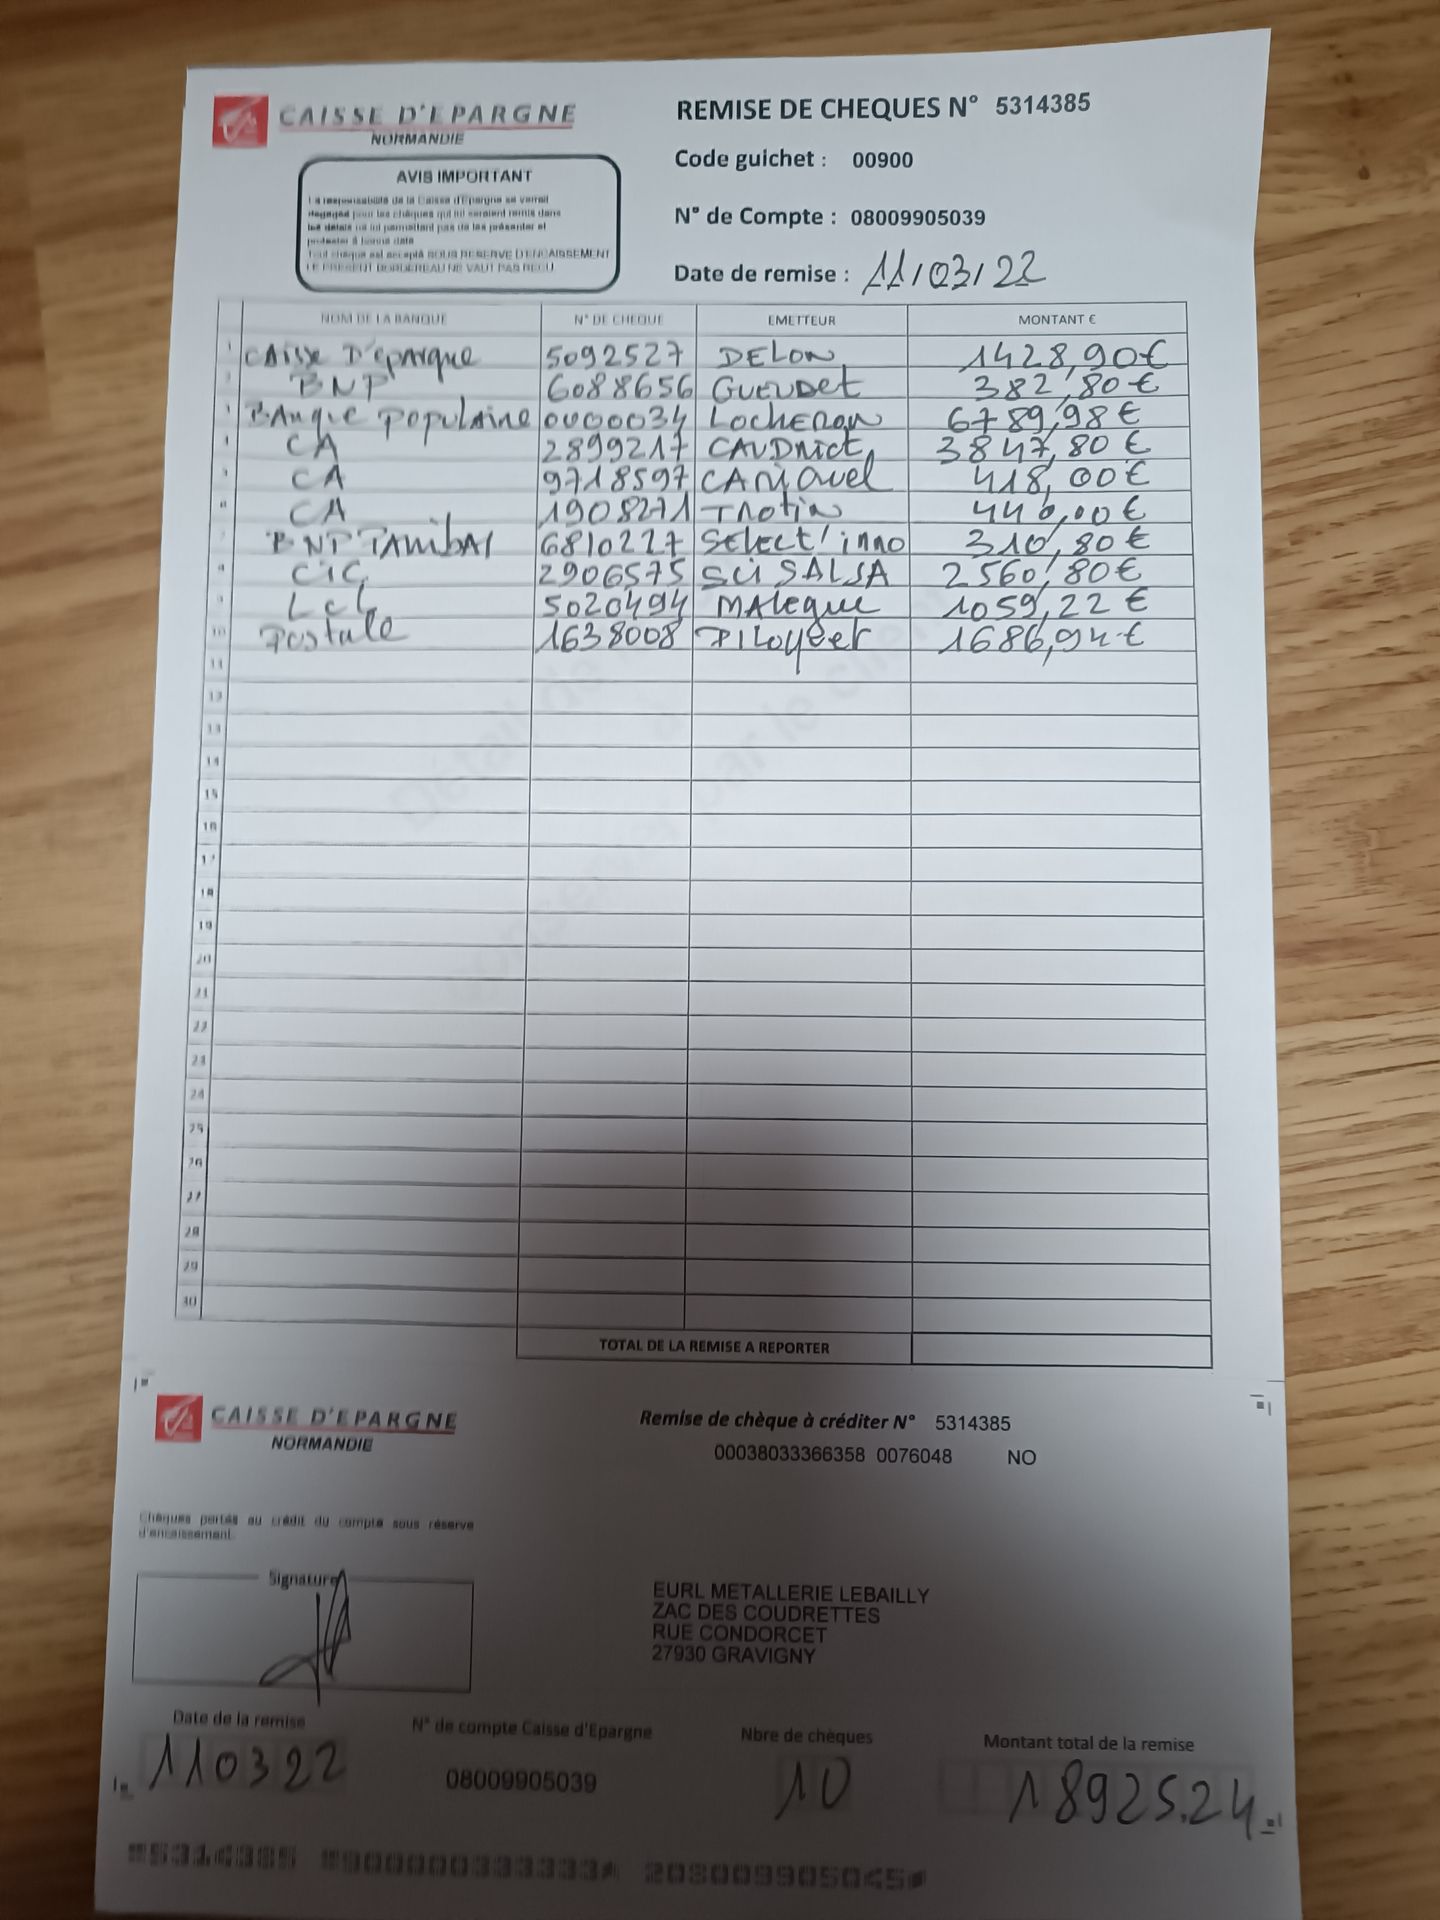 CAISSE D'EPARGNE
NORMANDIE
REMISE DE CHEQUES N° 5314385
Code guichet : 00900
N° de Compte : 08009905039
Date de remise : 11/03/22
AVIS IMPORTANT
La responsabilité de la Caisse d'Epargne se verrait
dégagée pour les chèques qui lui seraient remis dans
les délais ne lui permettant pas de les présenter et
protester à bonne date
Tout chèque est accepté SOUS RESERVE D'ENCAISSEMENT
LE PRESENT BORDEREAU NE VAUT PAS RECU
NOM DE LA BANQUE N° DE CHEQUE EMETTEUR MONTANT €
1 CAisse D'épargne 5092527 DELON 1428,90€
2 BNP 6088656 GUEUDET 382,80€
3 BAnque populaire 0000034 LOCHERON 6789,98€
4 CA 2899217 3847,80€
5 CA 9718597 418,00€
6 CA 1908271 Trotin 440,00€
7 BNP 6810227 Select'inno 310,80€
8 CIC 2906575 SCI SALSA 2560,80€
9 LCL 5020494 MAlegue 1059,22€
10 Postale 1638008 1686,94€
11
12
13
14
15
16
17
18
19
20
21
22
23
24
25
26
27
28
29
30
TOTAL DE LA REMISE A REPORTER
CAISSE D'EPARGNE
NORMANDIE
Remise de chèque à créditer N° 5314385
00038033366358 0076048 NO
Chèques portés au crédit du compte sous réserve
d'encaissement.
Signature
EURL METALLERIE LEBAILLY
ZAC DES COUDRETTES
RUE CONDORCET
27930 GRAVIGNY
Date de la remise N° de compte Caisse d'Epargne Nbre de chèques Montant total de la remise
110322 08009905039 10 18925.24